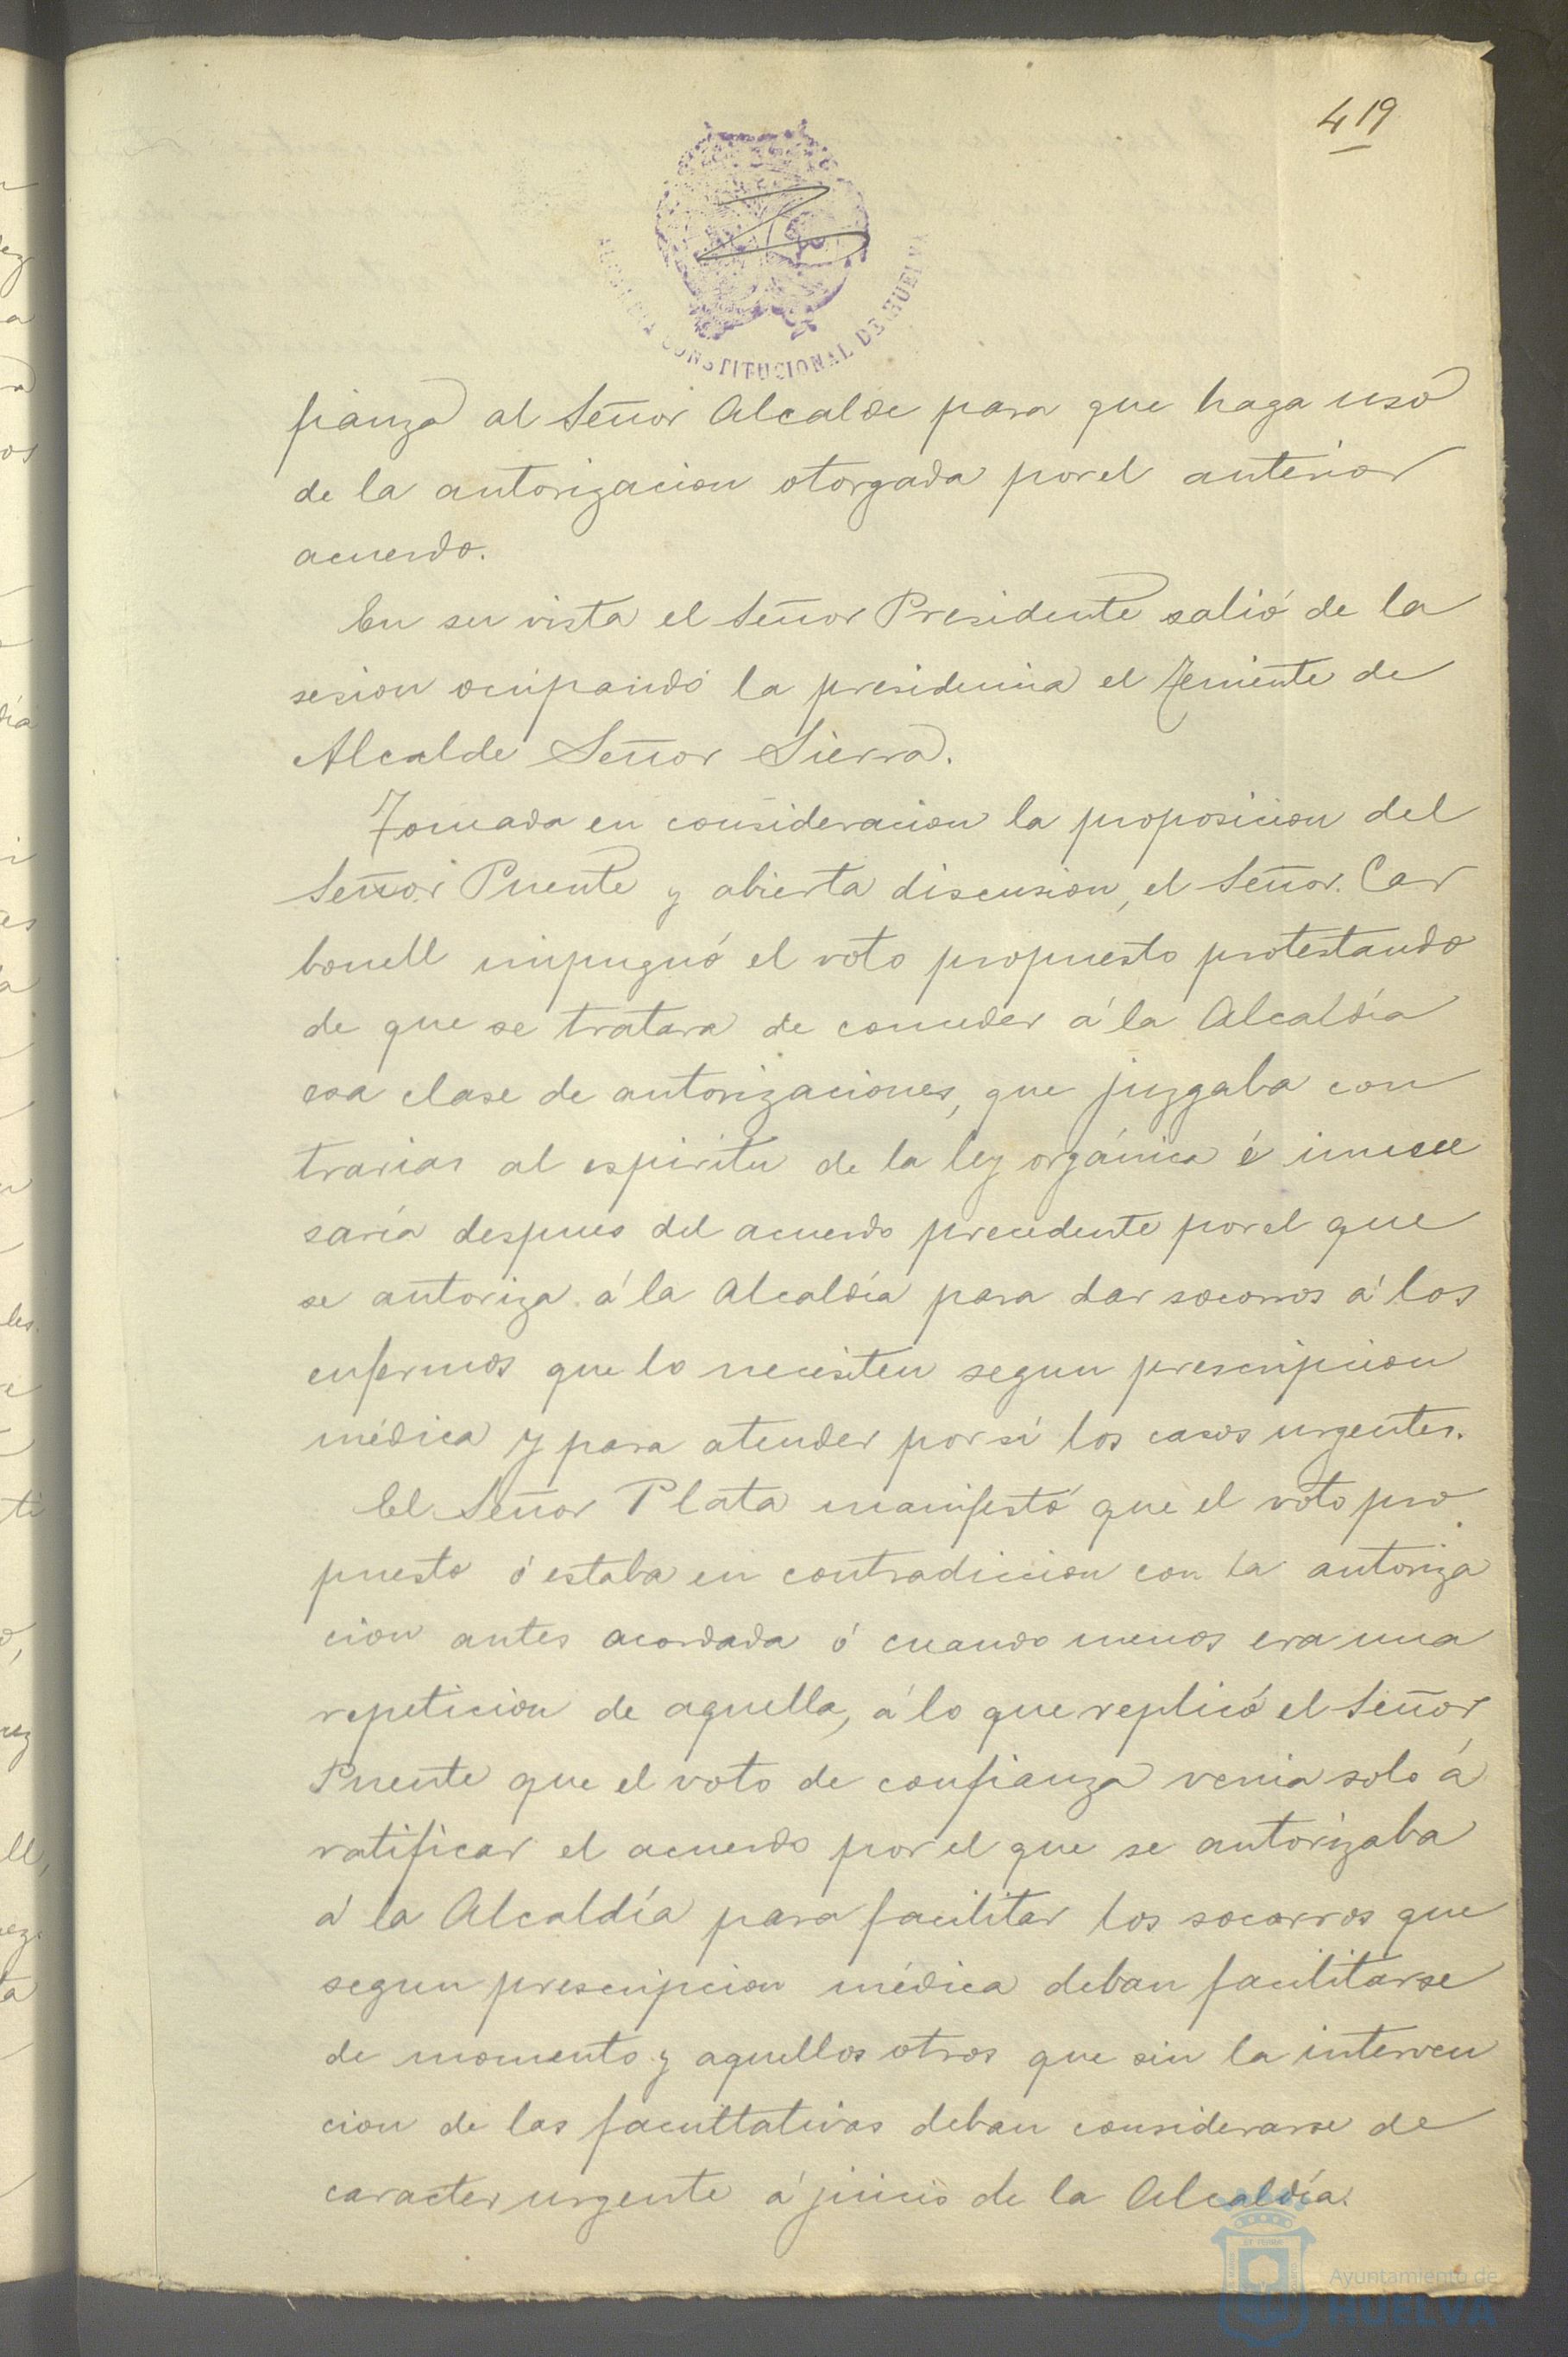 419
CONSTITUCIONAL DE HUELVA
fianza al Señor Alcalde para que haga uso
de la autorizacion otorgada por el anterior
acuerdo.
En su vista el Señor Presidente salió de la
sesion ocupando la presidencia el Teniente de
Alcalde Señor Sierra.
Tomada en consideracion la proposicion del
Señor Puente y abierta discusion, el Señor Car
bonell impugnó el voto propuesto protestando
de que se tratara de conceder á la Alcaldía
esa clase de autorizaciones, que juzgaba con
trarias al espiritu de la ley orgánica é innece
saría despues del acuerdo precedente por el que
se autoriza á la Alcaldía para dar socorros á los
enfermos que lo necesiten segun prescripcion
médica y para atender por sí los casos urgentes.
El Señor Plata manifestó que el voto pro
puesto ó estaba en contradiccion con la autoriza
cion antes acordada ó cuando menos era una
repeticion de aquella, á lo que replicó el Señor
Puente que el voto de confianza venia solo á
ratificar el acuerdo por el que se autorizaba
á la Alcaldía para facilitar los socorros que
segun prescripcion médica deban facilitarse
de momento y aquellos otros que sin la interven
cion de las facultativas deban considerarse de
caracter urgente á juicio de la Alcaldía.
Ayuntamiento de
HUELVA